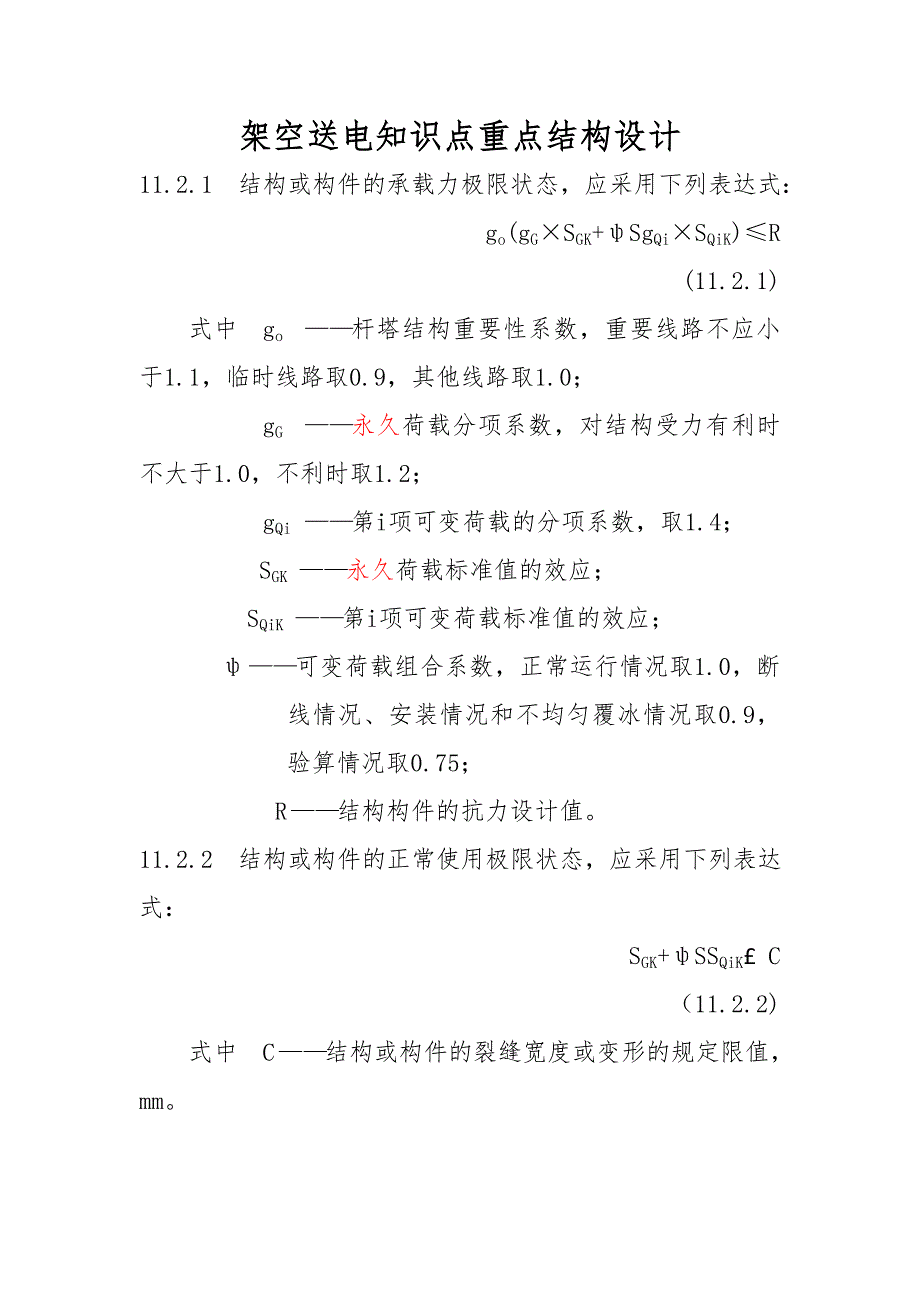 架空送电知识点重点结构设计
11.2.1 结构或构件的承载力极限状态，应采用下列表达式：
go(gG×SGK+ψSgQi×SQiK)≤R
(11.2.1)
式中 go ——杆塔结构重要性系数，重要线路不应小
于1.1，临时线路取0.9，其他线路取1.0；
gG ——永久荷载分项系数，对结构受力有利时
不大于1.0，不利时取1.2；
gQi ——第i项可变荷载的分项系数，取1.4；
SGK ——永久荷载标准值的效应；
SQiK ——第i项可变荷载标准值的效应；
ψ——可变荷载组合系数，正常运行情况取1.0，断
线情况、安装情况和不均匀覆冰情况取0.9，
验算情况取0.75；
R——结构构件的抗力设计值。
11.2.2 结构或构件的正常使用极限状态，应采用下列表达
式：
SGK+ψSSQiK£ C
（11.2.2)
式中 C——结构或构件的裂缝宽度或变形的规定限值，
mm。